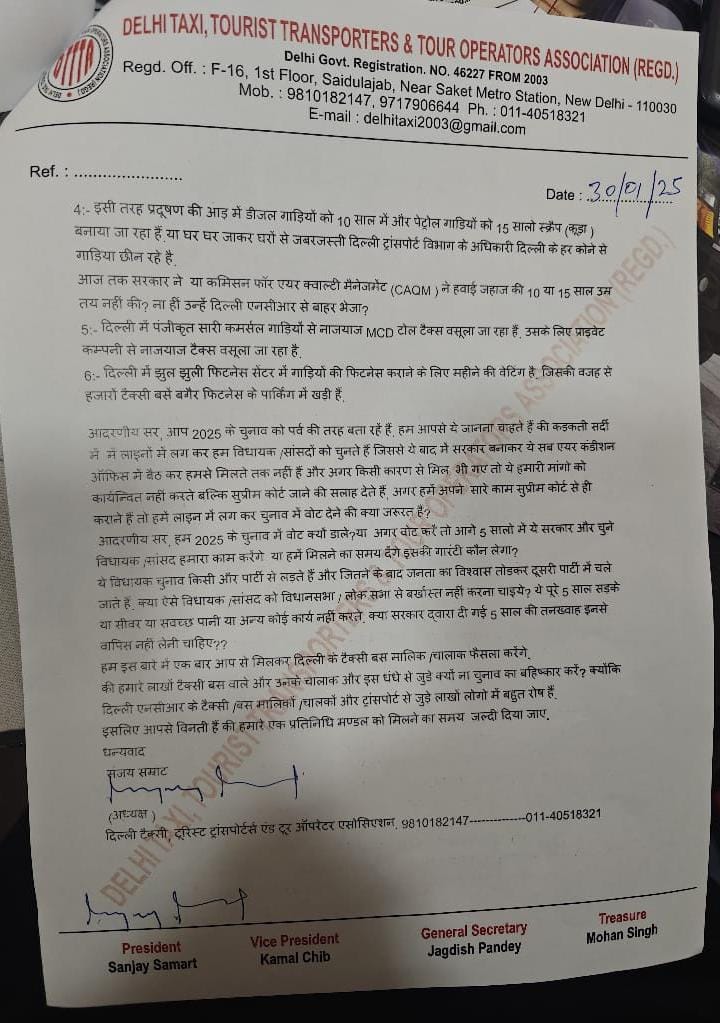 DELHI TAXI, TOURIST TRANSPORTERS & TOUR OPERATORS ASSOCIATION (REGD.)
Delhi Govt. Registration. NO. 46227 FROM 2003
Regd. Off. : F-16, 1st Floor, Saidulajab, Near Saket Metro Station, New Delhi - 110030
Mob. : 9810182147, 9717906644 Ph. : 011-40518321
E-mail : delhitaxi2003@gmail.com
DTTTA
Ref. : ........................
Date : 30/01/25
4:- इसी तरह प्रदूषण की आड़ में डीजल गाड़ियों को 10 साल में और पेट्रोल गाड़ियों को 15 सालो स्क्रैप (कूड़ा)
बनाया जा रहा हैं.या घर घर जाकर घरों से जबरजस्ती दिल्ली ट्रांसपोर्ट विभाग के अधिकारी दिल्ली के हर कोने से
गाड़िया छीन रहे है.
आज तक सरकार ने या कमिसन फॉर एयर क्वाल्टी मैनेजमेंट (CAQM ) ने हवाई जहाज की 10 या 15 साल उम्र
तय नहीं की? ना ही उन्हें दिल्ली एनसीआर से बाहर भेजा?
5:- दिल्ली में पंजीकृत सारी कमर्सल गाड़ियों से नाजयाज MCD टोल टैक्स वसूला जा रहा हैं. उसके लिए प्राइवेट
कम्पनी से नाजयाज टैक्स वसूला जा रहा है.
6:- दिल्ली में झुल झुली फिटनेस सेंटर में गाड़ियों की फिटनेस कराने के लिए महीने की वेटिंग है. जिसकी वजह से
हजारों टैक्सी बसें बगैर फिटनेस के पार्किंग में खड़ी हैं.
आदरणीय सर, आप 2025 के चुनाव को पर्व की तरह बता रहे हैं. हम आपसे ये जानना चाहते हैं की कड़कती सर्दी
में में लाइनों में लग कर हम विधायक /सांसदों को चुनते हैं जिससे ये बाद में सरकार बनाकर ये सब एयर कंडीशन
ऑफिस में बैठ कर हमसे मिलते तक नहीं हैं और अगर किसी कारण से मिल भी गए तो ये हमारी मांगो को
कार्यन्वित नहीं करते बल्कि सुप्रीम कोर्ट जाने की सलाह देते हैं. अगर हमें अपने सारे काम सुप्रीम कोर्ट से ही
कराने हैं तो हमें लाइन में लग कर चुनाव में वोट देने की क्या जरुरत है?
आदरणीय सर, हम 2025 के चुनाव में वोट क्यों डाले?या अगर वोट करें तो आगे 5 सालो में ये सरकार और चुने
विधायक /सांसद हमारा काम करेंगे या हमें मिलने का समय देंगे इसकी गारंटी कौन लेगा?
ये विधायक चुनाव किसी और पार्टी से लड़ते हैं और जितने के बाद जनता का विश्वास तोडकर दूसरी पार्टी में चले
जाते हैं. क्या ऐसे विधायक /सांसद को विधानसभा / लोक सभा से बर्खास्त नहीं करना चाइये? ये पूरे 5 साल सड़के
या सीवर या सवच्छ पानी या अन्य कोई कार्य नहीं करते. क्या सरकार द्वारा दी गई 5 साल की तनख्वाह इनसे
वापिस नहीं लेनी चाहिए??
हम इस बारे में एक बार आप से मिलकर दिल्ली के टैक्सी बस मालिक /चालाक फैसला करेंगे.
की हमारे लाखों टैक्सी बस वाले और उनके चालाक और इस धंधे से जुड़े क्यों ना चुनाव का बहिष्कार करें? क्योंकि
दिल्ली एनसीआर के टैक्सी /बस मालिकों /चालकों और ट्रांसपोर्ट से जुड़े लाखो लोगो में बहुत रोष हैं.
इसलिए आपसे विनती हैं की हमारे एक प्रतिनिधि मण्डल को मिलने का समय जल्दी दिया जाए.
धन्यवाद
संजय सम्राट
(अध्यक्ष )
दिल्ली टैक्सी, टूरिस्ट ट्रांसपोर्टर्स एंड टूर ऑपरेटर एसोसिएशन, 9810182147--------------011-40518321
DELHI TAXI, TOURIST TRANSPORTERS & TOUR OPERATORS ASSOCIATION (REGD.)
President
Sanjay Samart
Vice President
Kamal Chib
General Secretary
Jagdish Pandey
Treasure
Mohan Singh